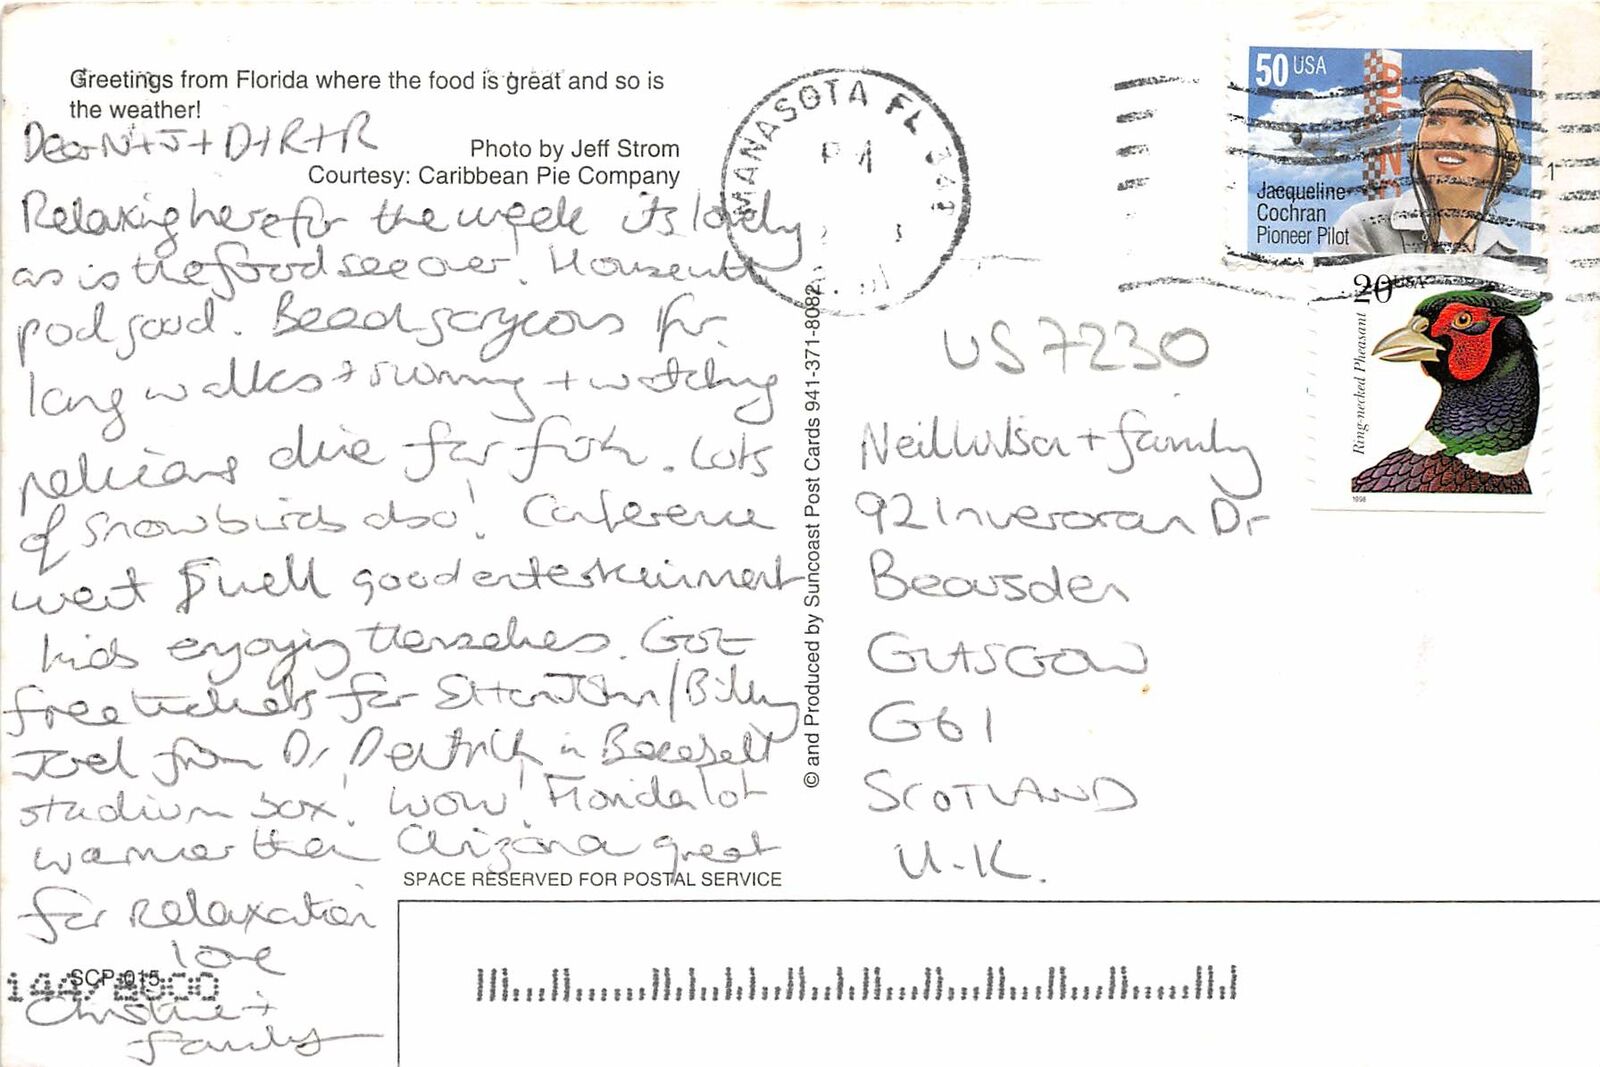 Greetings from Florida where the food is great and so is
the weather!
Photo by Jeff Strom
Courtesy: Caribbean Pie Company
Dear N+J+D+R+R
Relaxing here for the week its lovely
as is the food see over!
pod good. Beach gorgeous for
long walks + swimming + watching
pelicans dive for fish. Lots
of snowbirds also! Conference
went well good entertainment
kids enjoying themselves. Got
free tickets for Elton John/Billy
Joel from Dr in Baseball
stadium box! Wow! Florida lot
warmer than Arizona great
for relaxation
love
Christine +
family
SCP-015
© and Produced by Suncoast Post Cards 941-371-8082
MANASOTA FL 342
PM
50 USA
Jacqueline
Cochran
Pioneer Pilot
20 USA
Ring-necked Pheasant
1998
US 7230
Neil Wilson + family
92 Inveroran Dr
Bearsden
GLASGOW
G61
SCOTLAND
U.K.
SPACE RESERVED FOR POSTAL SERVICE